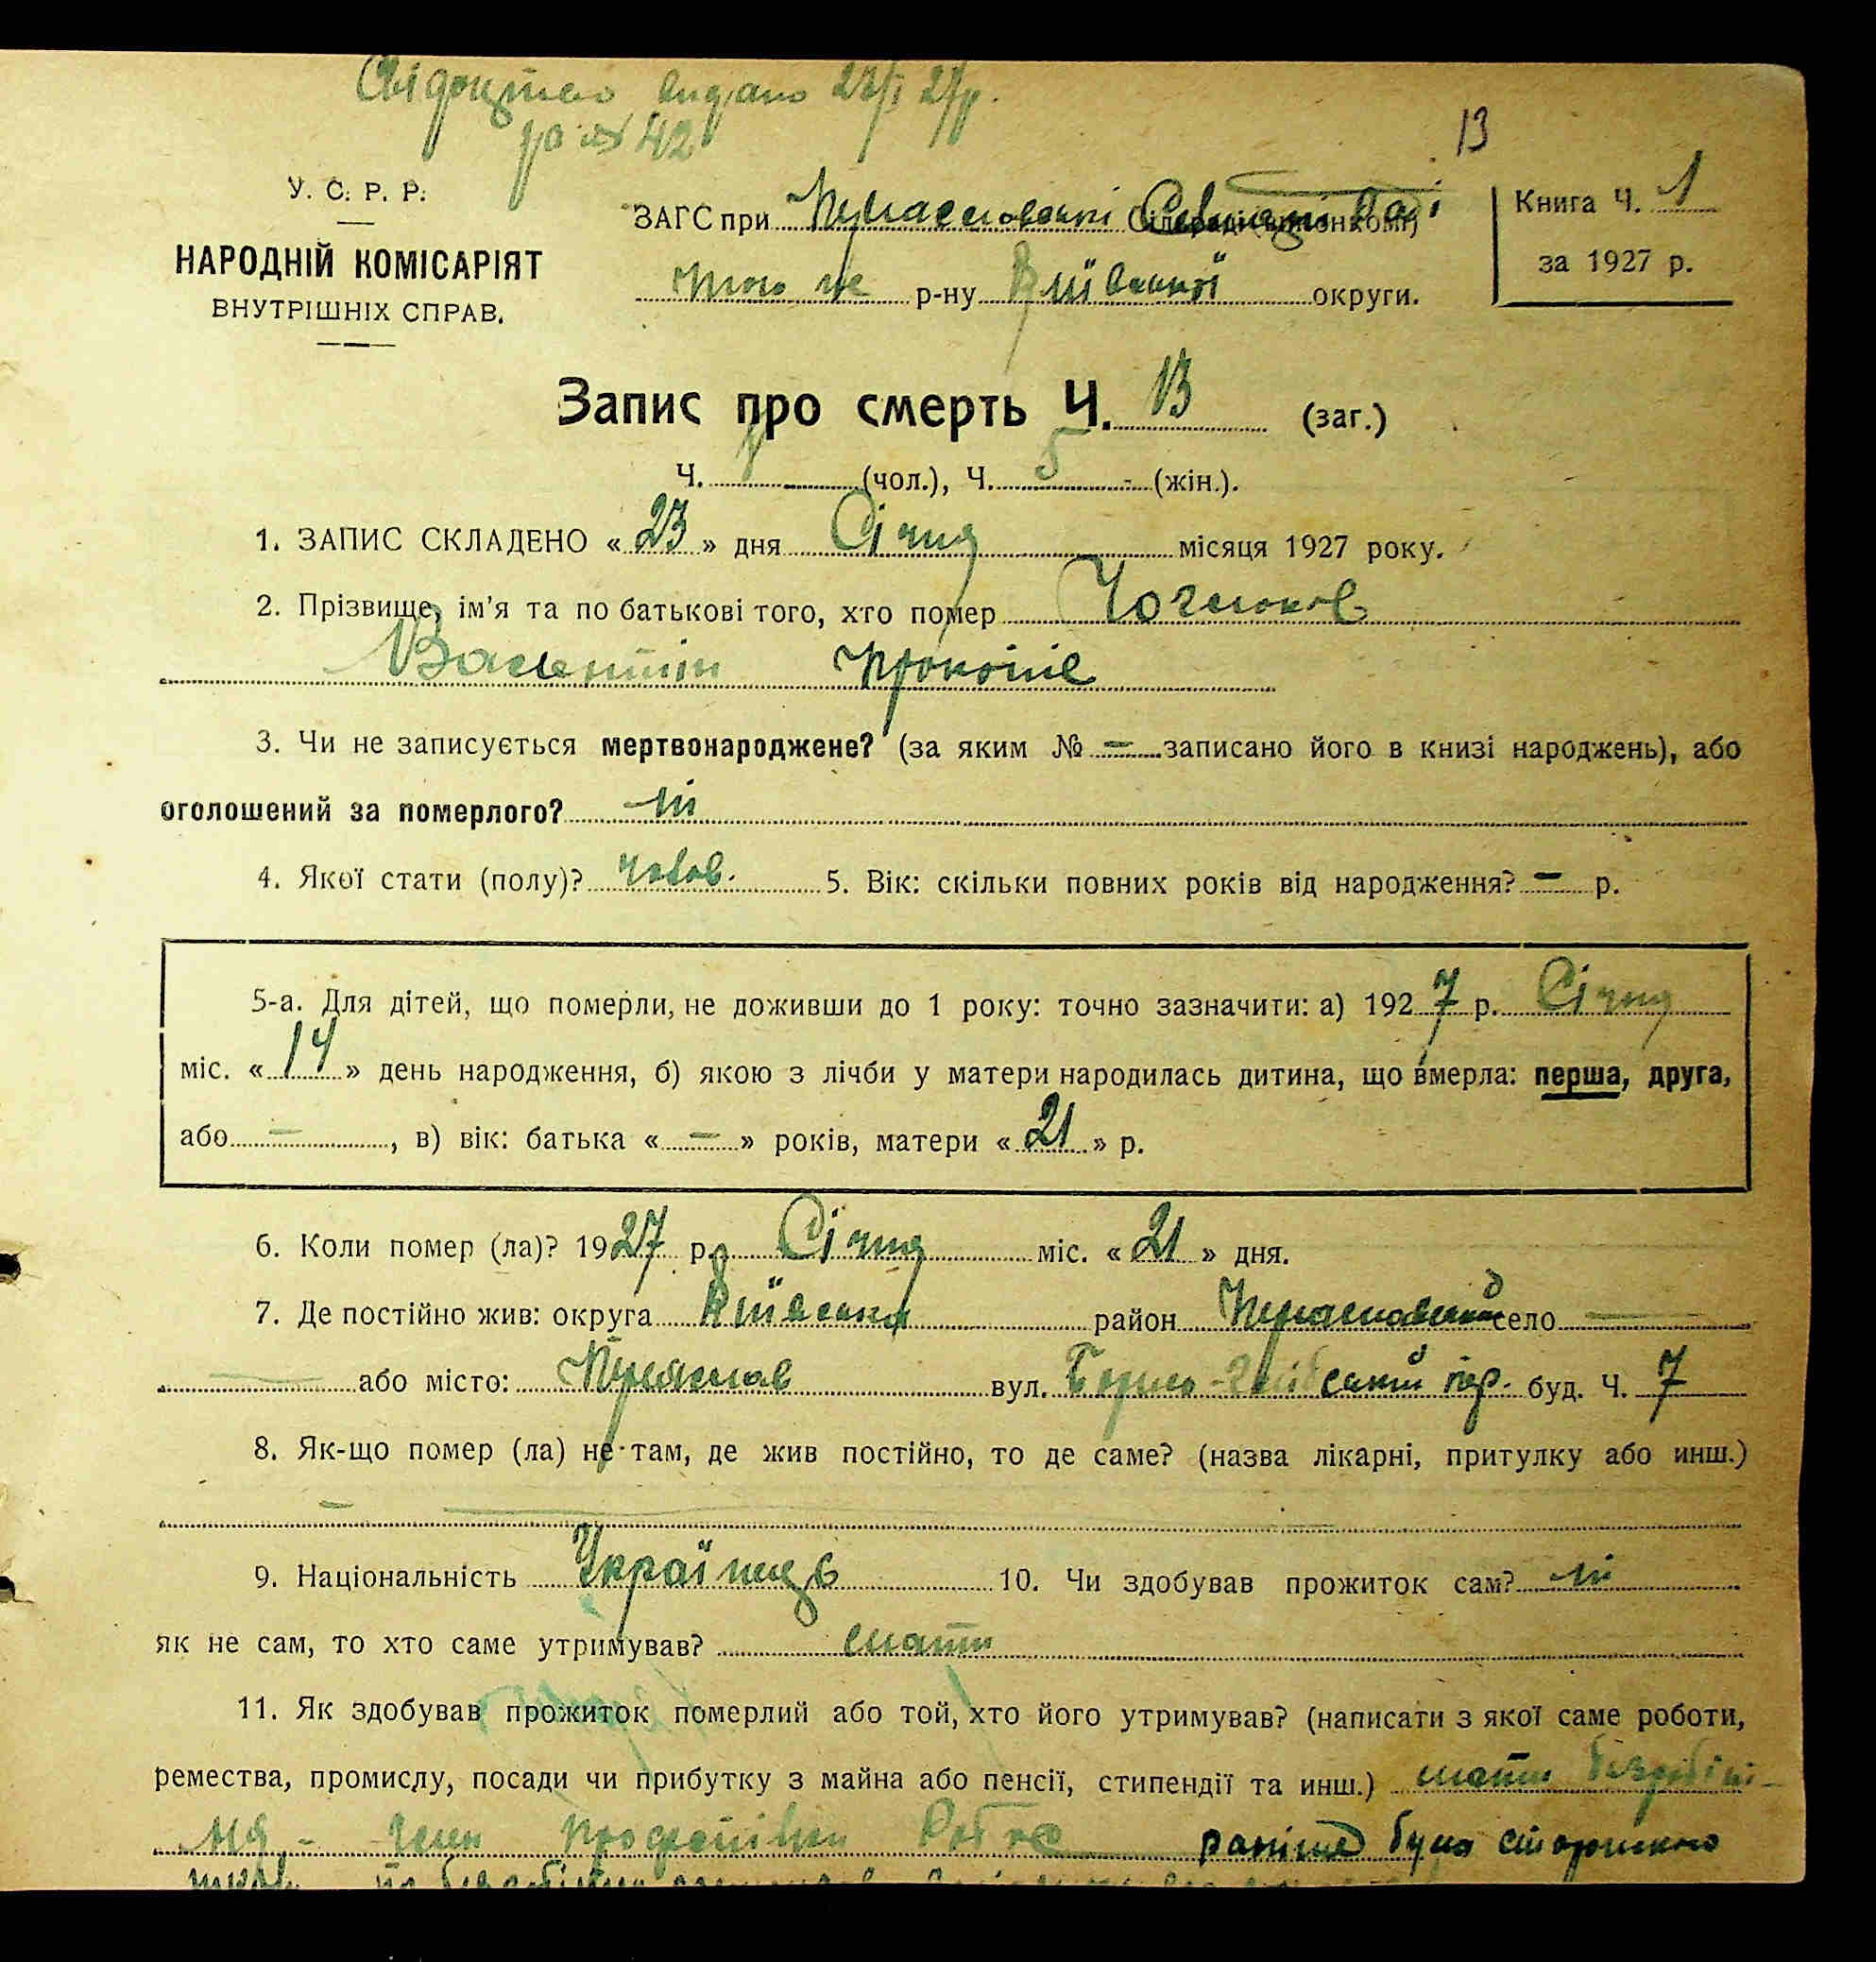 Свідоцтво видано 23/I 27р.
за № 42
13
У. С. Р. Р.
НАРОДНІЙ КОМІСАРІЯТ
ВНУТРІШНІХ СПРАВ.
ЗАГС при Переяславські
того ж р-ну Київської округи.
Книга Ч. 1
за 1927 р.
Запис про смерть Ч. 13 (заг.)
Ч. 8 (чол.), Ч. 5 - (жін.).
1. ЗАПИС СКЛАДЕНО « 23 » дня Січня місяця 1927 року.
2. Прізвище, ім'я та по батькові того, хто помер
Валентин Прокопів
3. Чи не записується мертвонароджене? (за яким № — записано його в книзі народжень), або
оголошений за померлого? ні
4. Якої стати (полу)? чолов. 5. Вік: скільки повних років від народження? — р.
5-а. Для дітей, що померли, не доживши до 1 року: точно зазначити: а) 1927 р. Січня
міс. « 14 » день народження, б) якою з лічби у матери народилась дитина, що вмерла: перша, друга,
або — , в) вік: батька « — » років, матери « 21 » р.
6. Коли помер (ла)? 1927 р. Січня міс. « 21 » дня.
7. Де постійно жив: округа Київська район Переяславський село —
— або місто: Переяслав вул. Борисо-Глібський пер. буд. Ч. 7
8. Як-що помер (ла) не там, де жив постійно, то де саме? (назва лікарні, притулку або инш.)
—
9. Національність Українець 10. Чи здобував прожиток сам? ні
як не сам, то хто саме утримував? мати
11. Як здобував прожиток померлий або той, хто його утримував? (написати з якої саме роботи,
ремества, промислу, посади чи прибутку з майна або пенсії, стипендії та инш.) мати безробіт-
ня - член професійної раніше була сторожкою